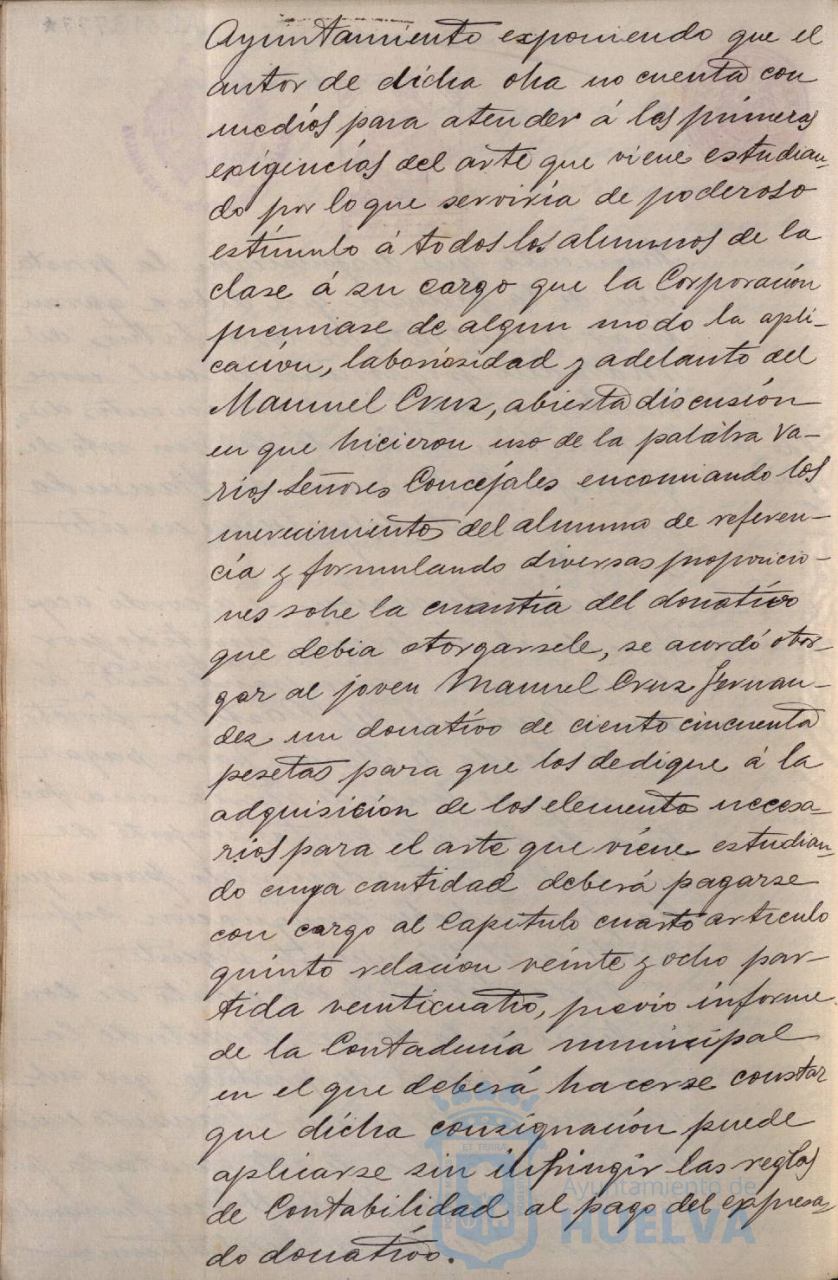 Ayuntamiento exponiendo que el
autor de dicha oba no cuenta con
medios para atender á las primeras
exigencias del arte que viene estudian-
do por lo que serviria de poderoso
estimulo á todos los alumnos de la
clase á su cargo que la Corporación
premiase de algun modo la apli-
cación, laboriosidad y adelanto del
Manuel Cruz, abierta discusión
en que hicieron uso de la palabra va-
rios Señores Concejales encomiando los
merecimientos del alumno de referen-
cia y formulando diversas proposicio-
nes sobe la cuantia del donativo
que debia otorgarsele, se acordó otor-
gar al joven Manuel Cruz Fernan-
dez un donativo de ciento cincuenta
pesetas para que los dedique á la
adquisición de los elementos necesa-
rios para el arte que viene estudian-
do cuya cantidad deberá pagarse
con cargo al Capitulo cuarto articulo
quinto relacion veinte y ocho par-
tida veinticuatro, previo informe
de la Contaduría municipal
en el que deberá hacerse constar
que dicha consignación puede
aplicarse sin infringir las reglas
de Contabilidad al pago del expresa-
do donativo.
Ayuntamiento de
HUELVA